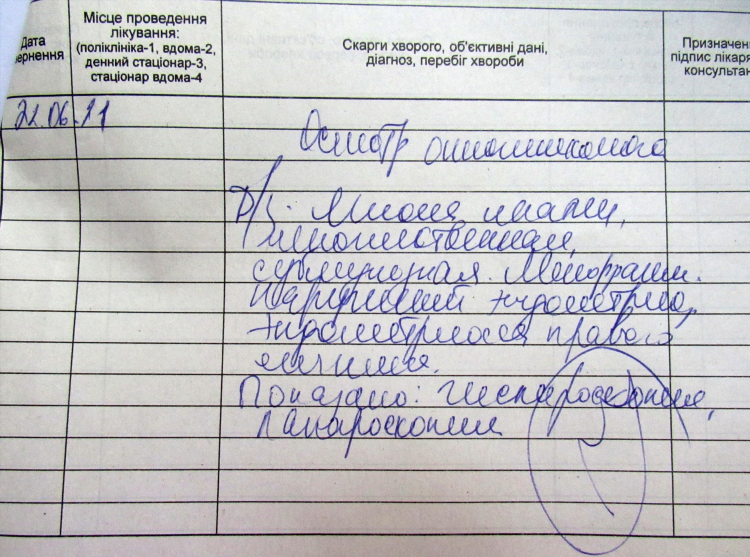 Дата
вернення
Місце проведення
лікування:
(поліклініка-1, вдома-2,
денний стаціонар-3,
стаціонар вдома-4
Скарги хворого, об'єктивні дані,
діагноз, перебіг хвороби
Призначен
підпис лікаря
консультан
22.06.11
Осмотр
D/S: Миома матки,
множественная,
субмукозная. Меноррагии.
эндометрия,
эндометриоз правого
яичника.
Показано: гистероскопия,
лапароскопия